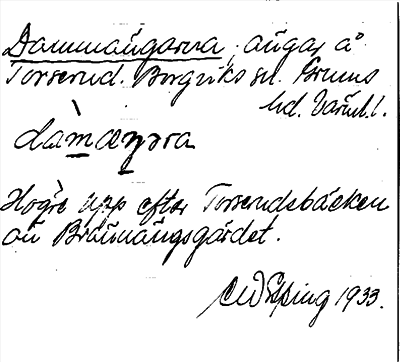 Dammängarna, ängar å
Torserud. Borgviks sn. Grums
hd. Värml.
dàmæŋɷra
Högre upp efter Torserudsbäcken
än Brännängsgärdet.
1933.